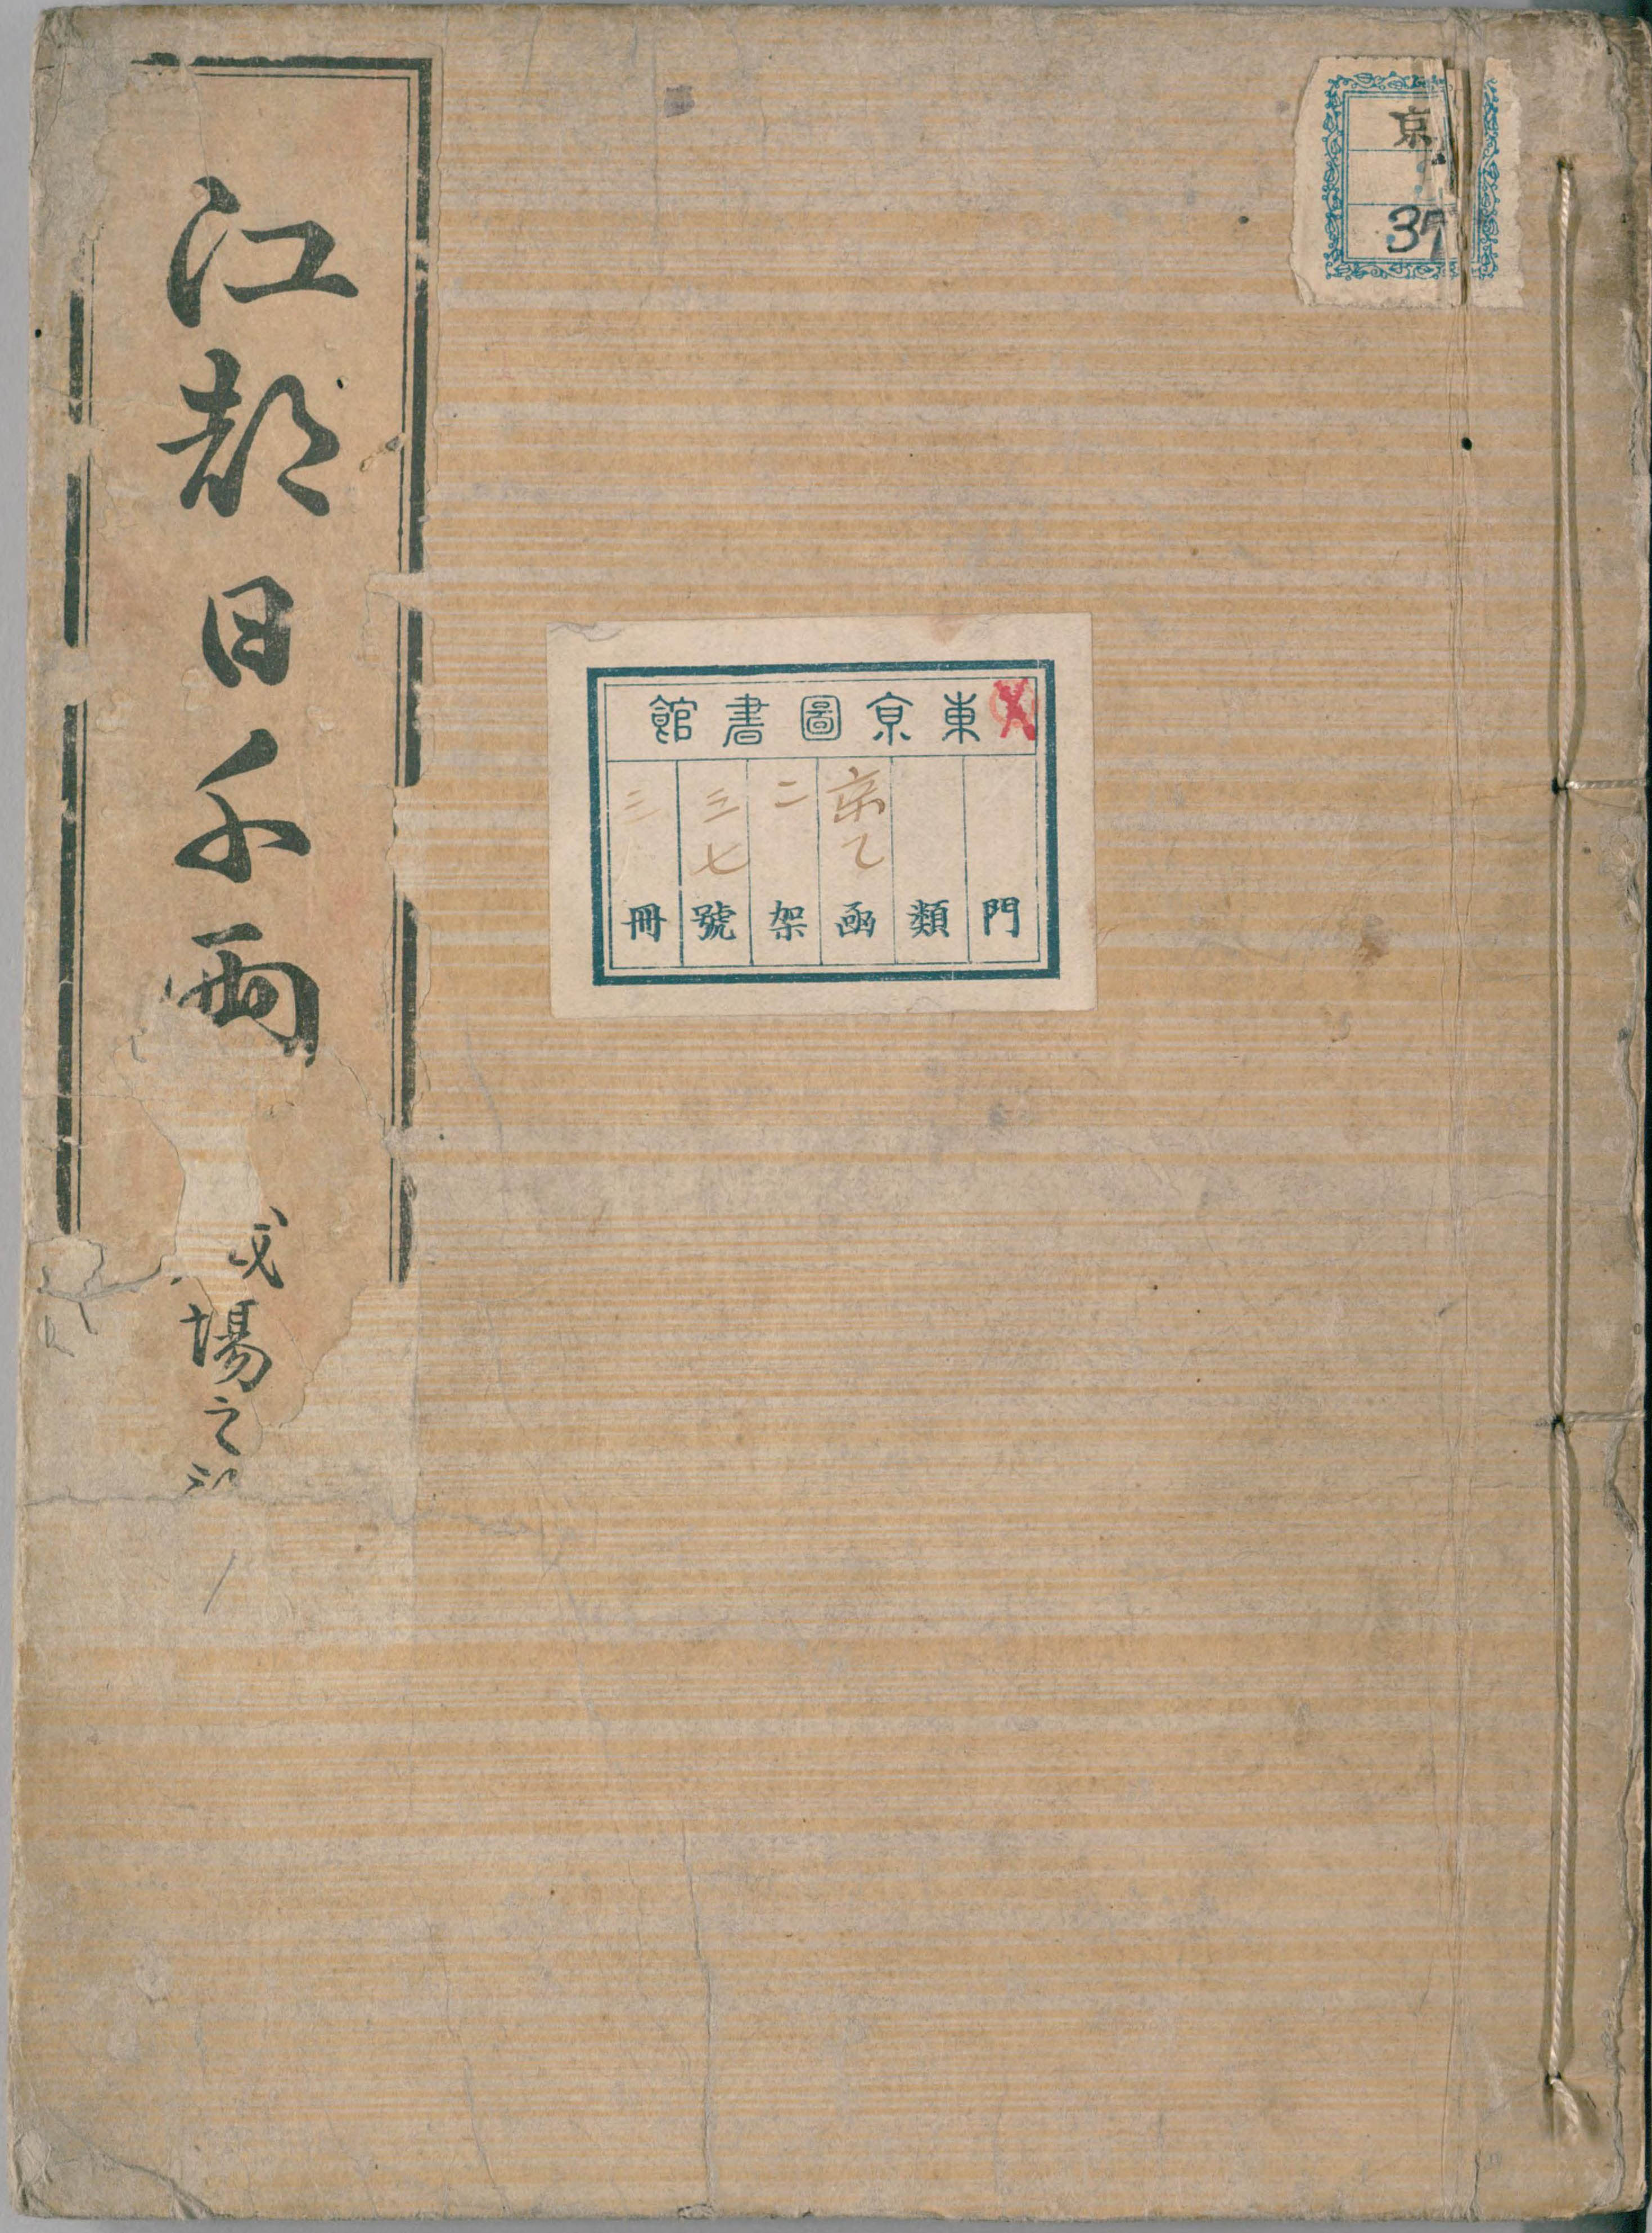 京
37
東京圖書館
門
類
京乙函
二架
三七號
三冊
江都日千両
戯場之部